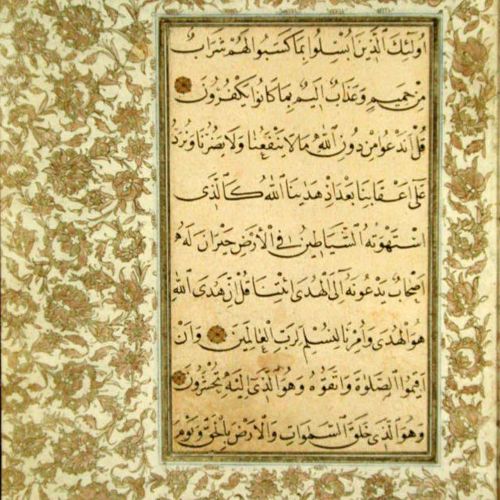 اولئك الذين ابسلوا بما كسبوا لهم شراب
من حميم وعذاب اليم بما كانوا يكفرون
قل اندعوا من دون الله ما لا ينفعنا ولا يضرنا ونرد
على اعقابنا بعد اذ هدينا الله كالذى
استهوته الشياطين فى الارض حيران له
اصحاب يدعونه الى الهدى ائتنا قل ان هدى الله
هو الهدى وامرنا لنسلم لرب العالمين وان
اقيموا الصلوة واتقوه وهو الذى اليه تحشرون
وهو الذى خلق السموات والارض بالحق ويوم